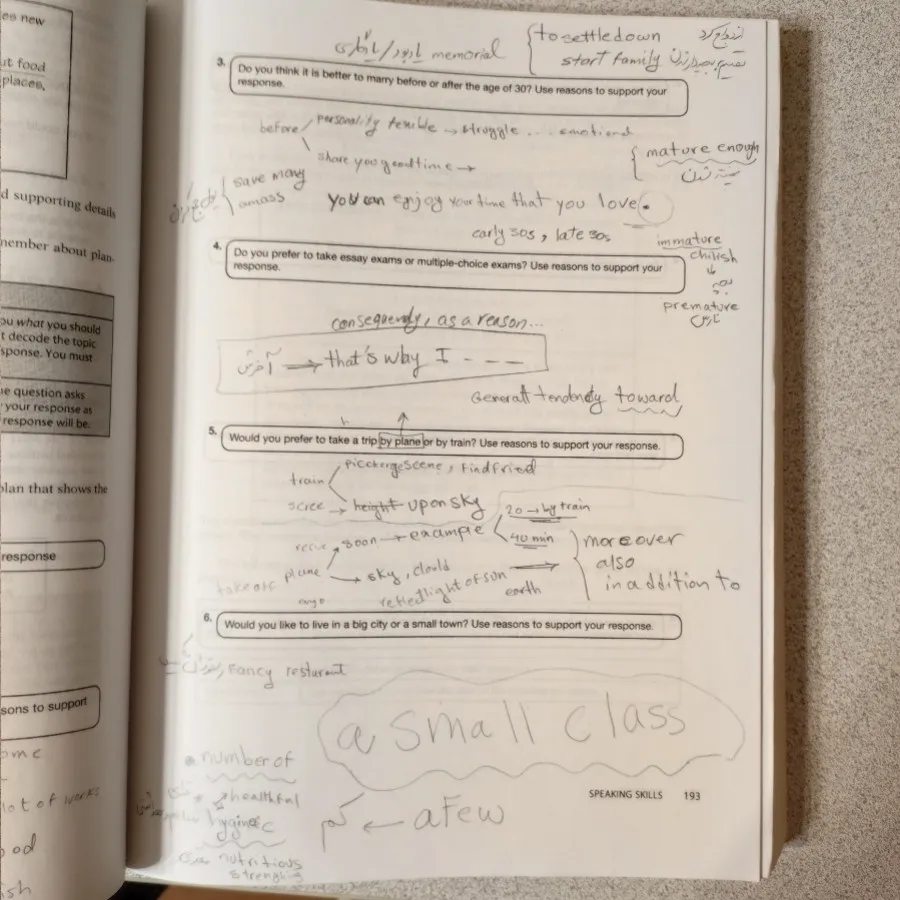 es new
ut food
places,
d supporting details
member about plan-
ou what you should
t decode the topic
sponse. You must
e question asks
your response as
response will be.
plan that shows the
response
sons to support
ome
lot of works
ood
ish
memorial
to settledown
start family
3. Do you think it is better to marry before or after the age of 30? Use reasons to support your
response.
before personality flexible → struggle ... emotional
share your goodtime →
mature enough
save many
amass
you can enjoy your time that you love.
early 30s, late 30s
immature
chilish
premature
نارس
4. Do you prefer to take essay exams or multiple-choice exams? Use reasons to support your
response.
consequendy, as a reason...
آخرش → that's why I - - - -
Generall tendendy toward
5. Would you prefer to take a trip by plane or by train? Use reasons to support your response.
train
scene, find fried
scree → height upon sky
20 → by train
soon → example
40 min
moreover
take off plane → sky, clould
also
refledlight of sun
earth
in addition to
6. Would you like to live in a big city or a small town? Use reasons to support your response.
fancy resturant
a small class
a number of
SPEAKING SKILLS 193
healthful
hygineic
کم ← a Few
nutritious